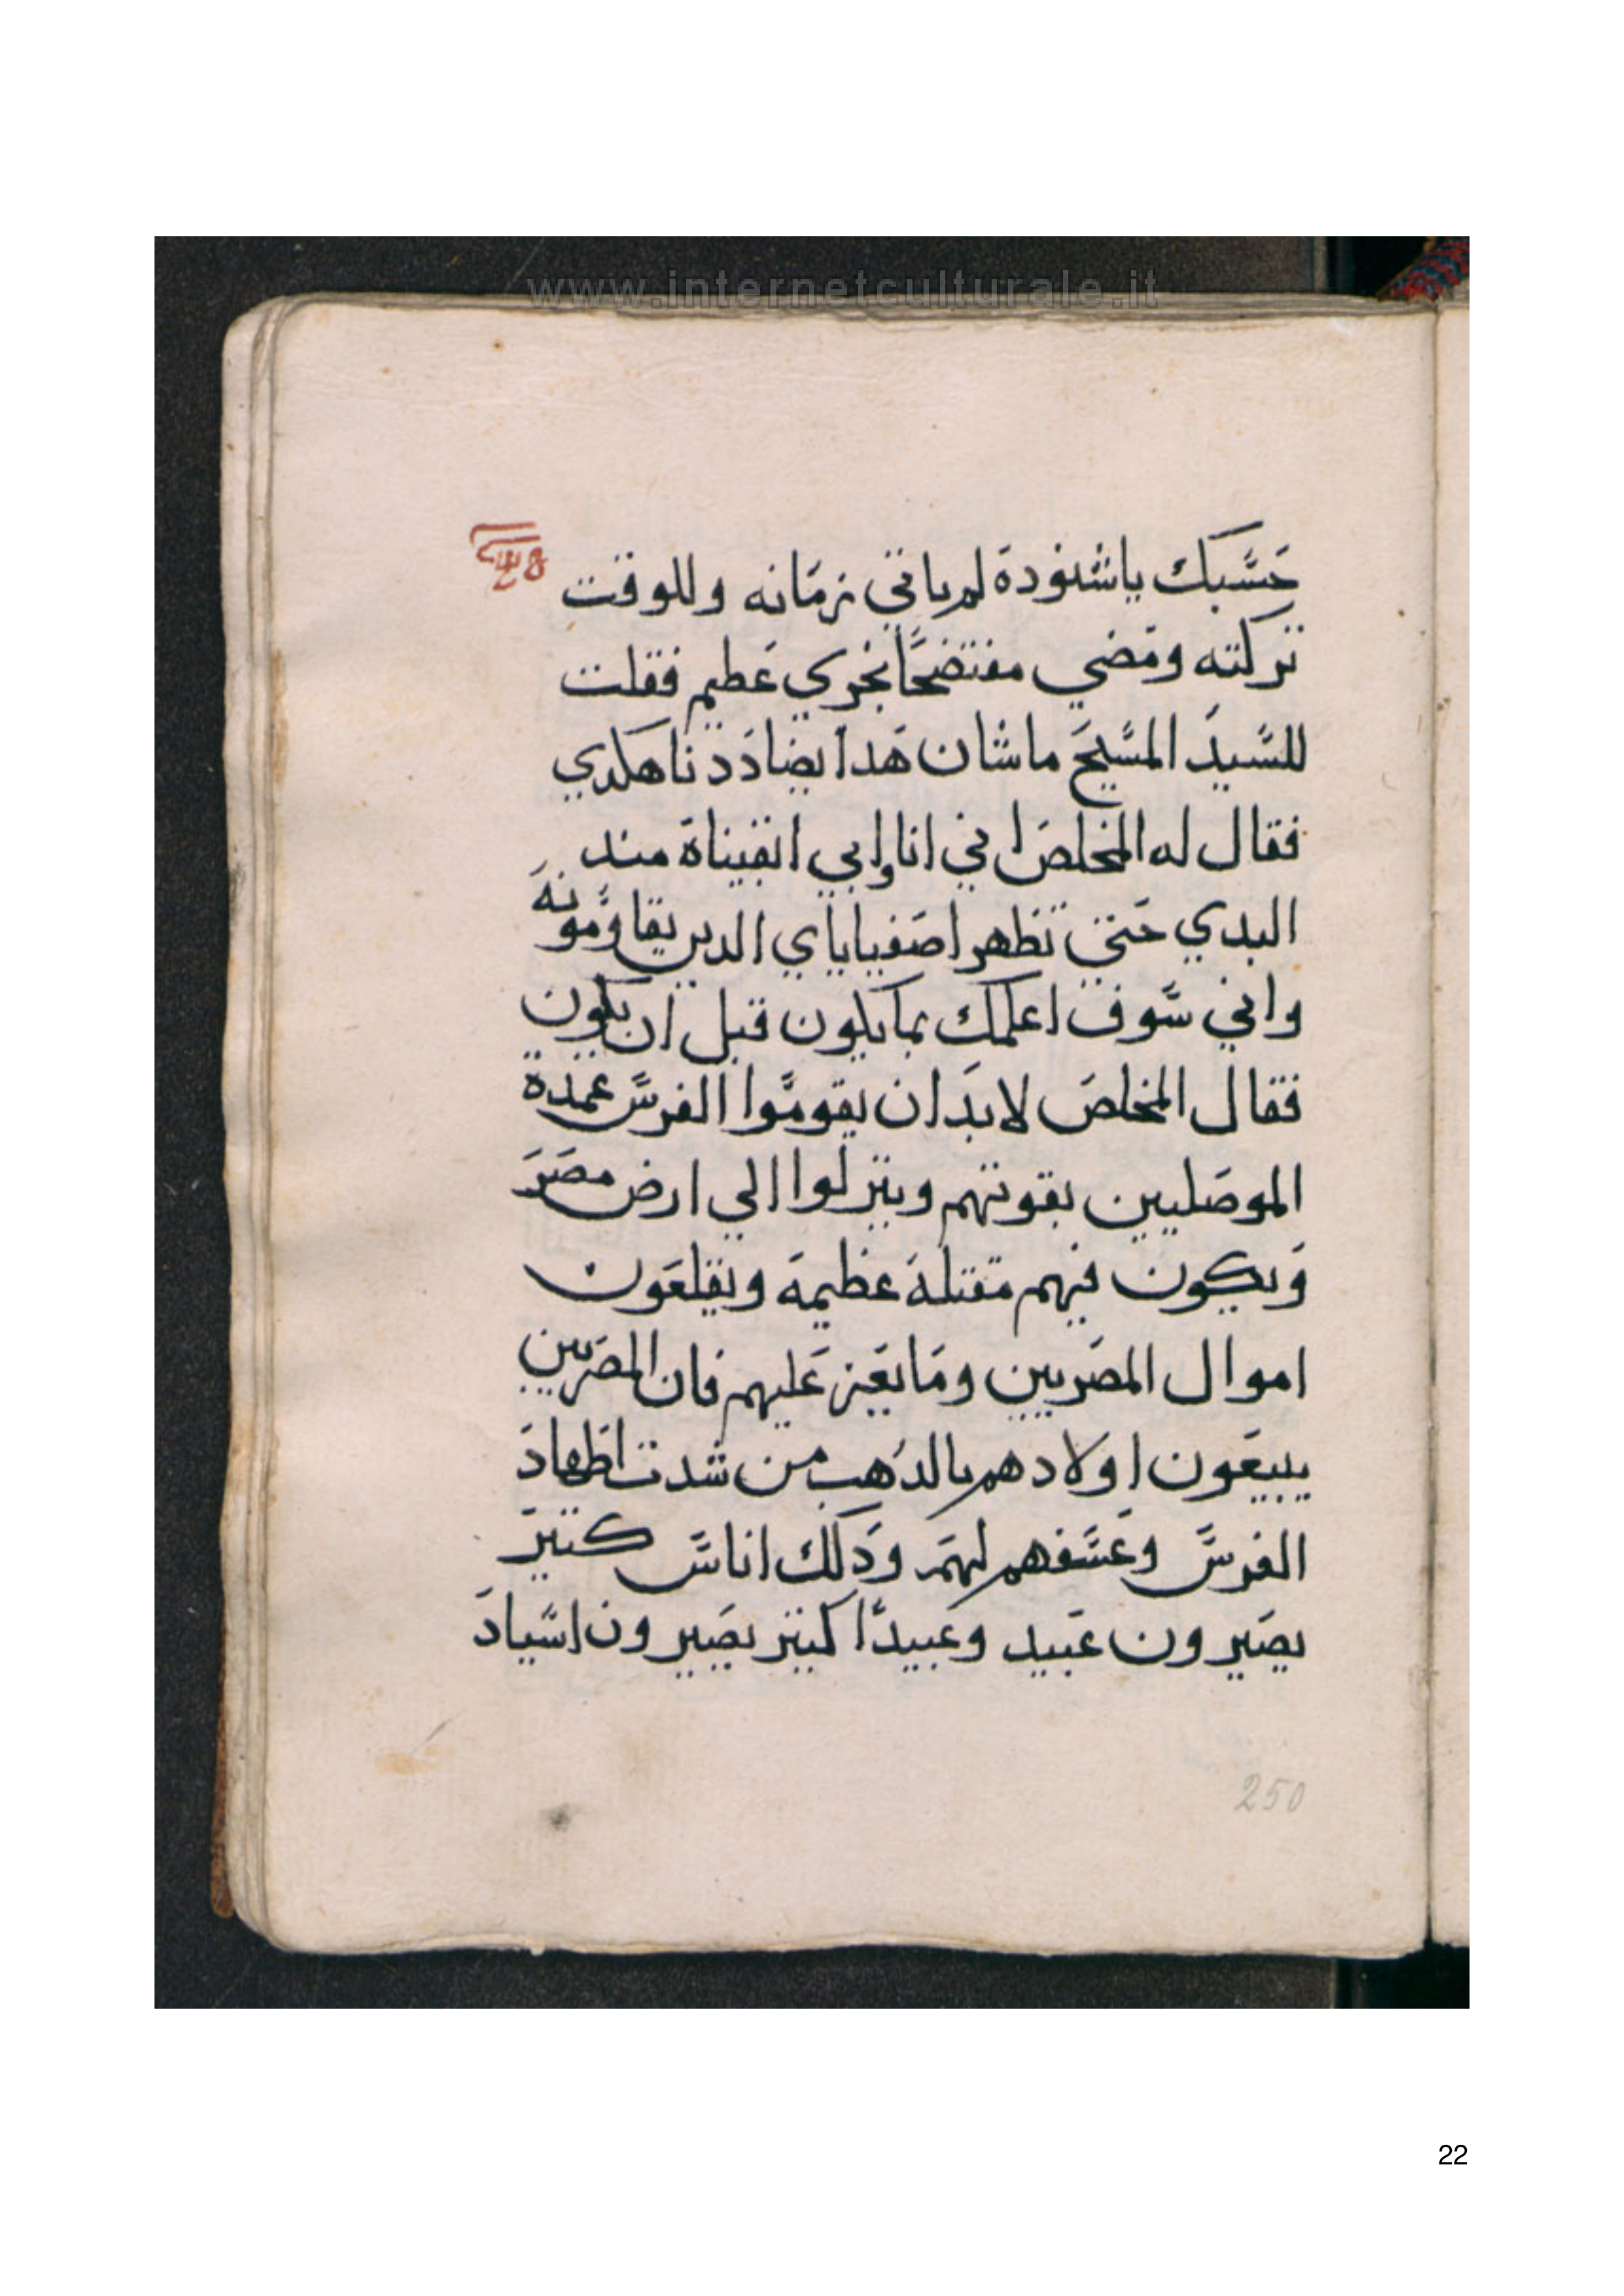 www.internetculturale.it
حسبك ياشنودة لم ياتي زمانه وللوقت
تركته ومضي مفتضحًا بخزي عظيم فقلت
للسيد المسيح ماشان هدا يضاددنا هكدي
فقال له المخلص اني انا وابي انقيناة مند
البدي حتي تظهر اصفياياي الدين يقاومونه
واني سوف اعلمك بما يكون قبل ان يكون
فقال المخلص لابد ان يقوموا الفرس عمدة
الموصليين بقوتهم وينزلوا الي ارض مصر
ويكون فيهم مقتلة عظيمة ويقلعون
اموال المصريين وما يعز عليهم فان المصريين
يبيعون اولادهم بالدهب من شدت اظهاد
الفرس وعسفهم لهم ودلك اناس كتير
يصيرون عبيد وعبيدًا كتير يصيرون اسياد
250
22